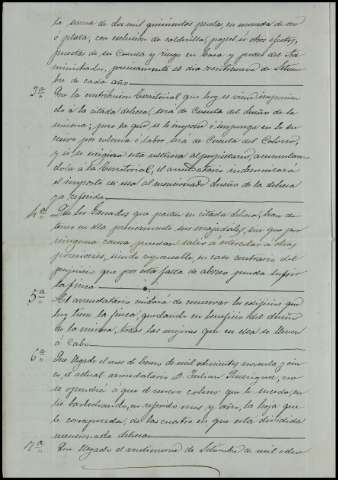 la suma de dos mil quinientas pesetas, en moneda de oro
ó plata, con esclusion de calderilla, papel ú otros efectos,
puestas de su Cuenta y riesgo en Casa y poder del Ad-
ministrador, precisamente el dia veintinueve de Setiem-
bre de cada año
3ª Que la contribucion territorial que hoy se viene imponien-
do á la citada dehesa, será de Cuenta del dueño de la
misma; pero la que se le imponga ó imponga en lo su-
cesivo por colonia ó labor será de Cuenta del Colono,
y si se exigiera esta ultima al propietario, acumulan-
dola á la territorial, el arrendatario indemnizará
el importe de esa al mencionado dueño de la dehesa
ya referida
4ª Que los Ganados que pasten en citada dehesa, han de
tener en ella precisamente sus majadales, sin que por
ninguna causa puedan salir á estercolar á otras
posesiones, siendo responsable, en caso contrario del
perjuicio que por esta falta de abono pueda sufrir
la finca
5ª El arrendatario cuidará de conservar los edificios que
hoy tiene la finca, quedando en beneficio del dueño
de la misma, todas las mejoras que en ella se lleven
á Cabo
6ª Que llegado el mes de Enero de mil ochocientos noventa y cin-
co, el actual arrendatario D. Julian Henriquez, no
se opondrá á que el nuevo colono que le suceda, en-
tre barbechando, en referido mes y año, la hoja que
le corresponda, de las cuatro en que está dividida
mencionada dehesa
7ª Que llegado el veintinueve de Setiembre de mil ocho-